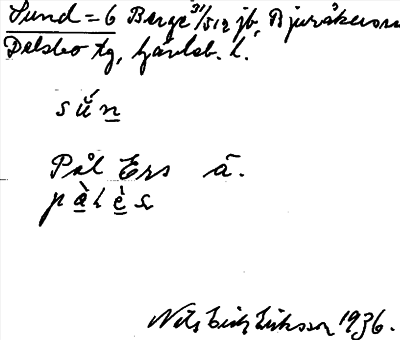 Sund = 6 Berge 31/512 jb, Bjuråkers sn
Delsbo tg, Gävleb. l.
sŭ́n
Pål Ers ā.
pàlès
Nils Erik Eriksson 1936.